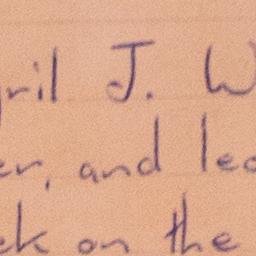 ril J. W
er, and lea
ck on the